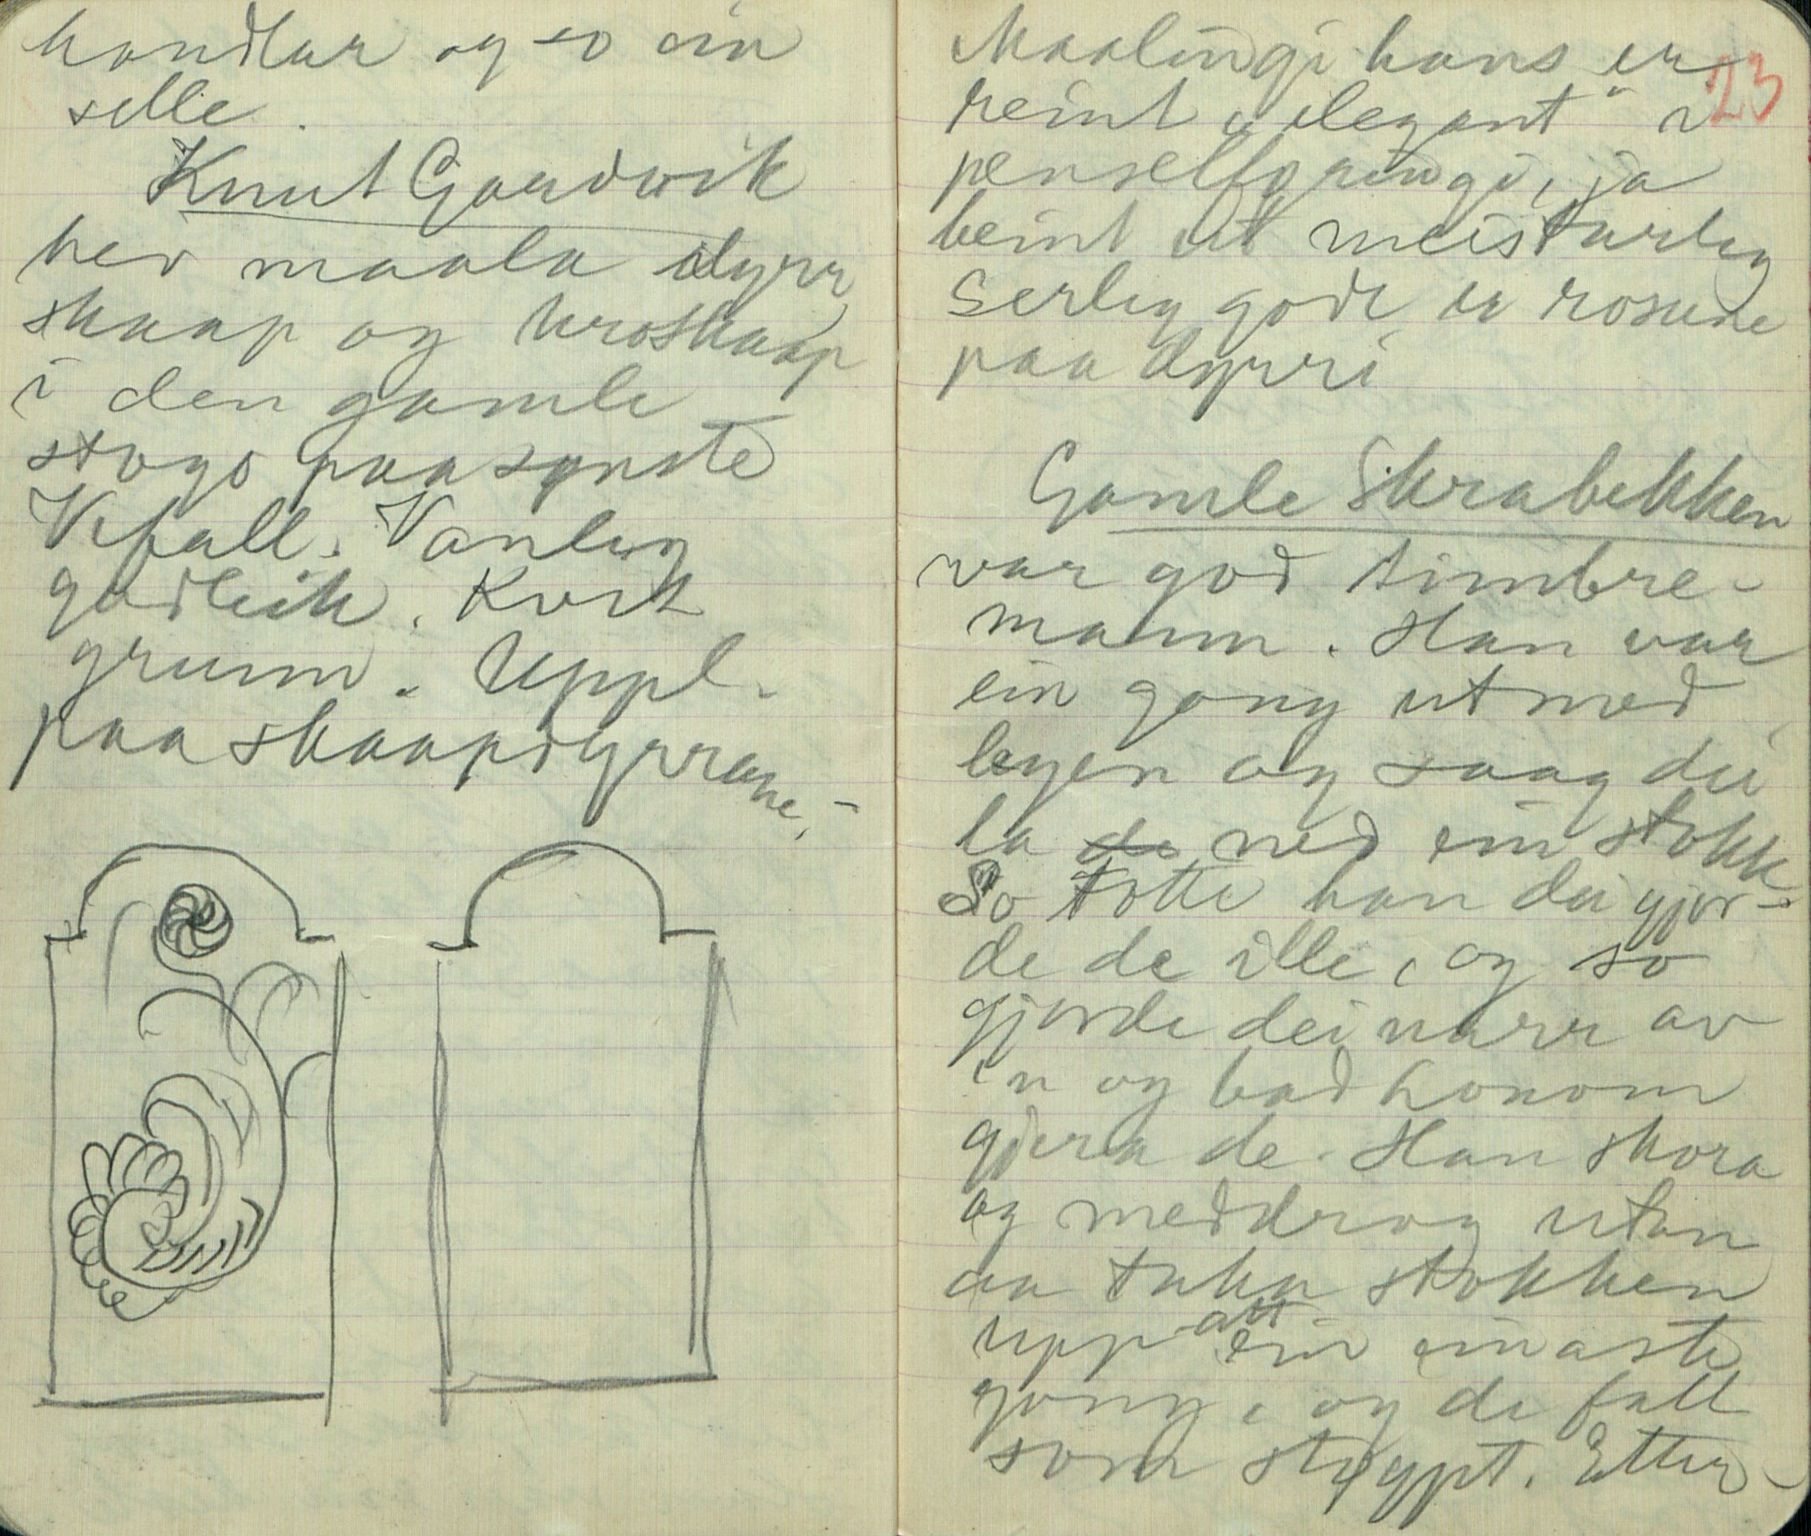 handlar og so ein
selle.
Knut Gardvik
hev maala dyrr,
skaap og kroskaap
i den gamle
stogo paa sønste
Vefall. Vanleg
godleik. Kvit
grunn. Uppl.
paa skaapdyrrane,-
Maalingi hans er
23
reint „elegant" i
penselføringi, ja
beint ut meistarleg
Serleg gode er rosune
paa dyrri
Gamle Skrabekken
var god timbre-
mann. Han var
ein gong ut med
leyen og saag dei
la ned ein stokk
So totte han dei gjor-
de de ille, og so
gjorde dei narr av
'n og bad honom
gjera de. Han skora
og meddrog utan
aa taka stokken
upp att ein einaste
gong, og de fall
som støypt. Etter-